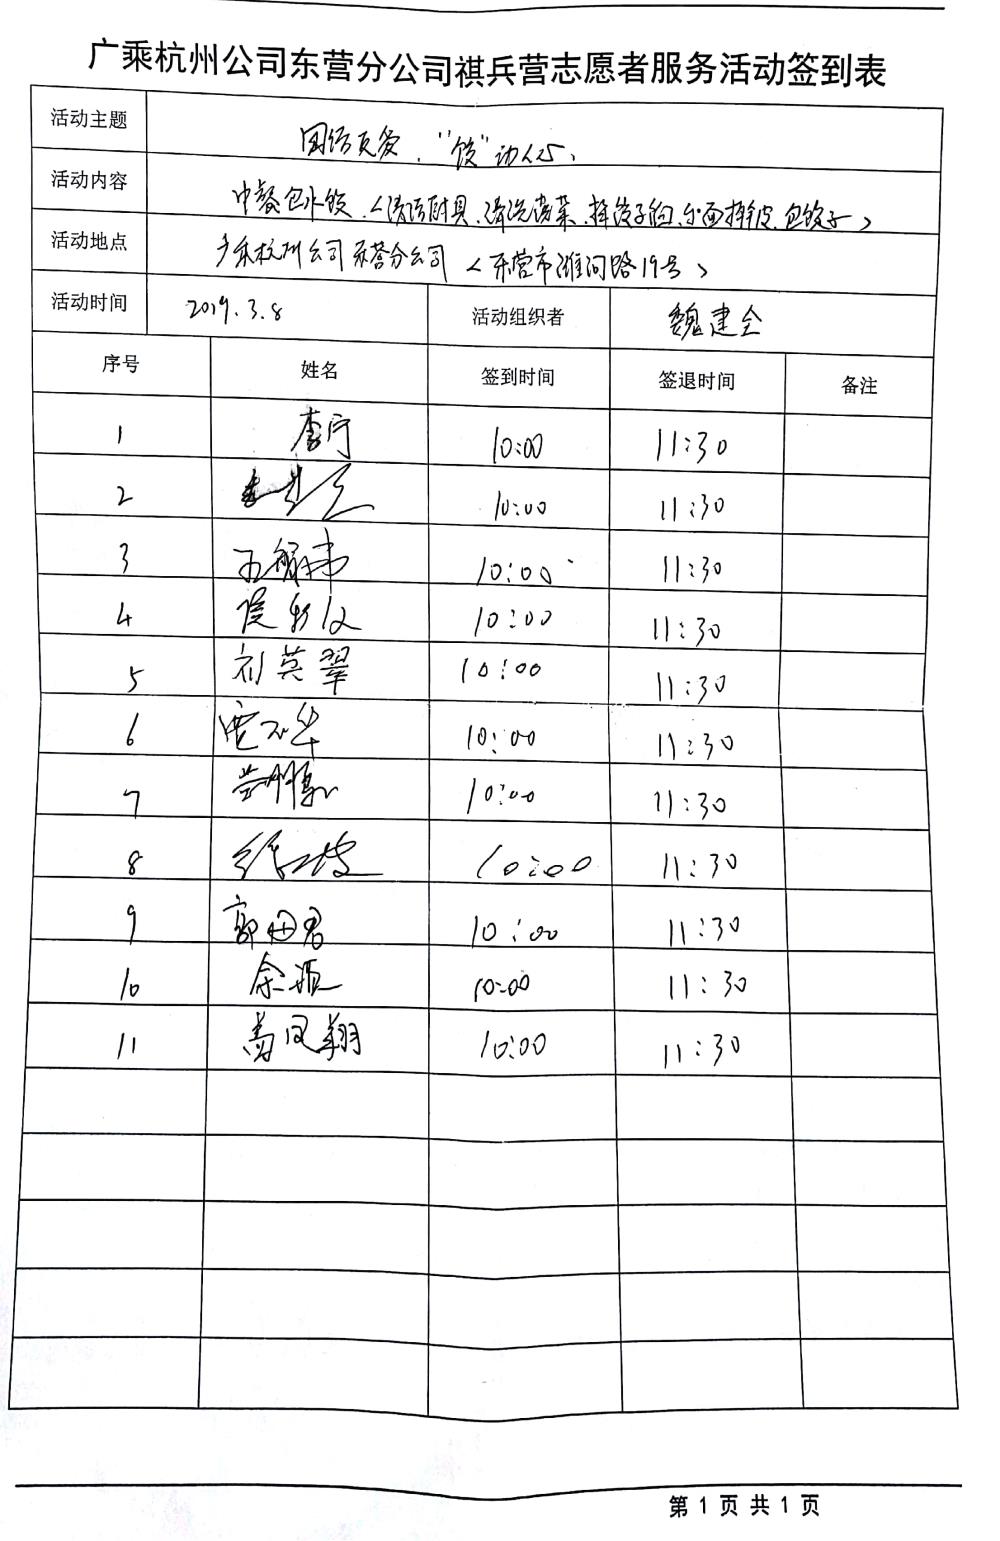 广乘杭州公司东营分公司祺兵营志愿者服务活动签到表
活动主题 团结友爱，“饺”动人心、
活动内容 中餐包水饺、<清洁厨具、清洗蔬菜、拌饺子馅、和面擀皮、包饺子>
活动地点 广乘杭州公司东营分公司 <东营市潍河路19号>
活动时间 2019.3.8 活动组织者 魏建全
序号 姓名 签到时间 签退时间 备注
1 李宁 10:00 11:30
2 10:00 11:30
3 10:00 11:30
4 10:00 11:30
5 刘英翠 10:00 11:30
6 10:00 11:30
7 10:00 11:30
8 10:00 11:30
9 郭田君 10:00 11:30
10 余 10:00 11:30
11 凤翔 10:00 11:30
第 1 页 共 1 页